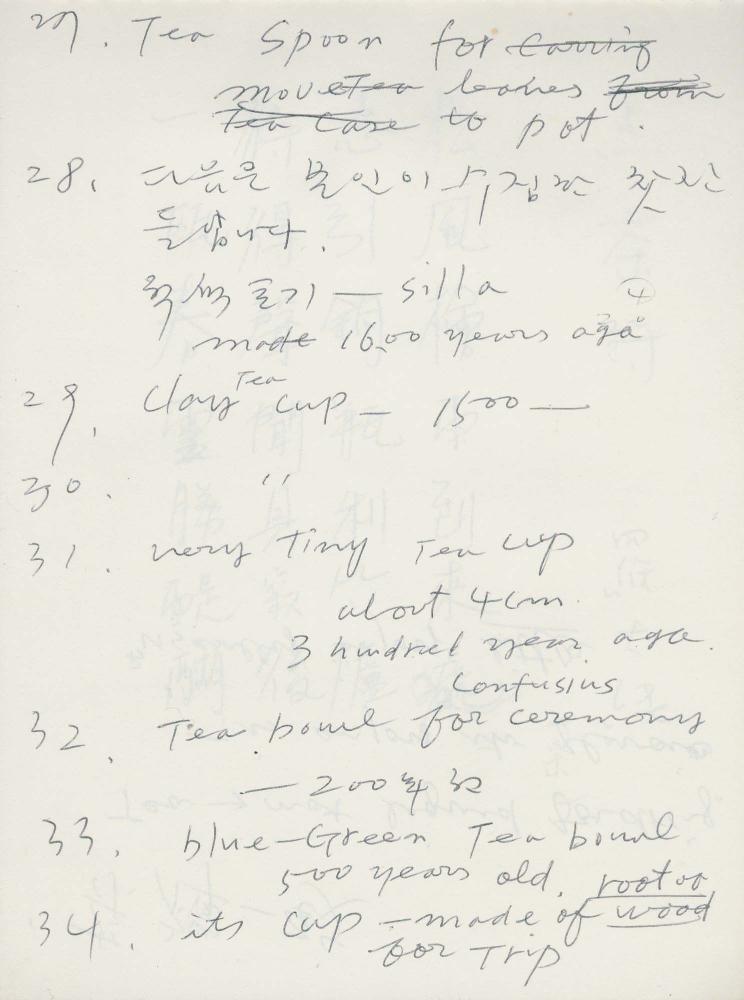 27. Tea Spoon for carring
move Tea leaves from
Tea Case to pot.
28. 다음은 본인이 수집한 찻잔
들입니다.
흑색 토기 — silla ④
made 1600 years ago
29. Clay Tea cup — 1500 —
30. "
31. very Tiny Tea cup
about 4cm.
3 hundred year ago.
Confusius
32. Tea bowl for ceremony
— 200年
33. blue-Green Tea bowal
500 years old.
34. its cup — made of wood
for Trip